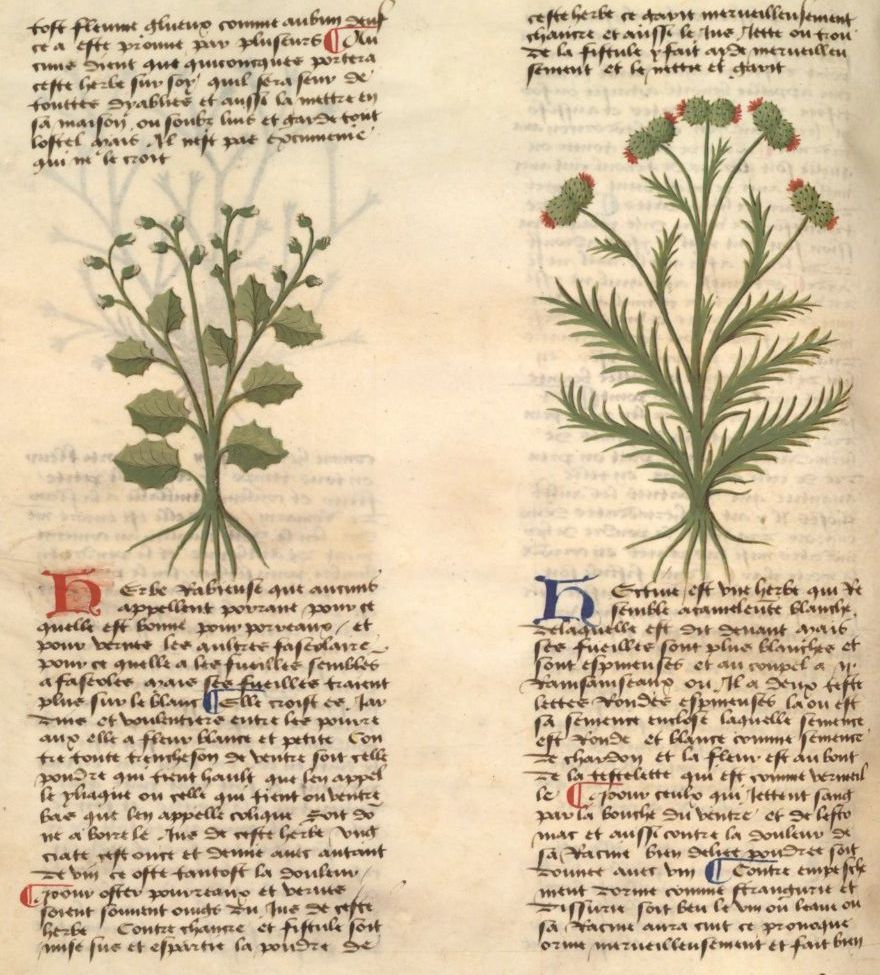 tost fleume glueux comme aubun deuf
ce a este prouue par plusieurs ¶ Au
cuns dient que quiconcques portera
ceste herbe sur soy quil sera seur de
touttes dyablies et aussi la mettre en
sa maison ou soubz luis et garde tout
lostel mais Il nest pas excumenie
qui ne le croit
Herbe Rabieuse que aucuns
appellent porraire pour ce
quelle est bonne pour porreaux et
pour verrues les aultres faseolaire
pour ce quelle a les fueilles semblés
a faseoles mais ses fueilles traient
plus sur le blanc ¶ Elle croist es Jar
dins et voulentiers entre les poure
aux elle a fleur blance et petite Con
tre toute trencheson de ventre soit celle
pouldre qui tient hault que len appel
le yliaque ou celle qui tient ou ventre
bas que len appelle colique Soit do
ne a boire le Jus de ceste herbe vng
ciate cest once et demie auec autant
de vin ce oste tantost la douleur
¶ Pour oster pourreaux et verrues
soient souuent oingts du Jus de ceste
herbe Contre chancre et fistule soit
mise sus et espartie la poudre de
ceste herbe ce garit merueilleusement
chancre et aussi le Jus Jette ou trou
de la fistule y fait ayde merueilleu
sement et le nettie et garit
Hectine est vne herbe qui Re
semble a cameleute blanche
delaquelle est dit deuant mais
ses fueilles sont plus blanches et
sont espineuses et au coupel a .ij.
Ramsainseaux ou Il a deux teste
lettes Rondes espineuses la ou est
sa semence enclose laquelle semence
est Ronde et blance comme semence
de chardon et la fleur est au bout
de la testelette qui est comme vermeil
le ¶ Pour ceulx qui Jettent sang
par la bouche du ventre et de lesto
mac et aussi contre la douleur de
sa Racine bien deliee poudree soit
donnee auec vin ¶ Contre empesche
ment dorine comme strangurie et
dissurie soit beu le vin ou leaue ou
sa Racine aura cuit ce prouoque
orine merueilleusement et fait bien